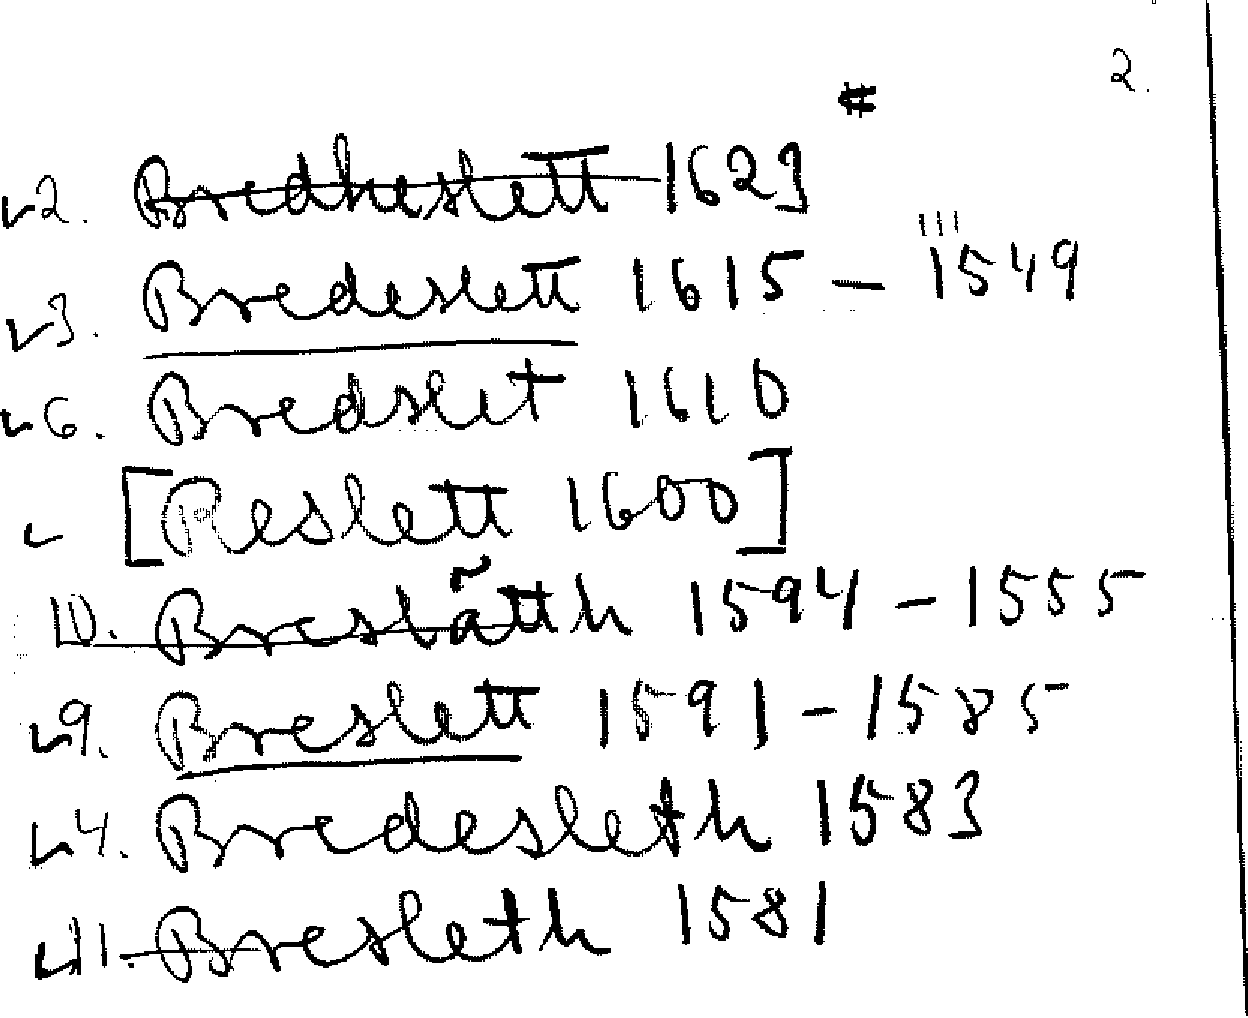 2.
#
✓2. Bredheslett 1623
✓3. Bredeslett 1615 – 1549
✓6. Bredslet 1610
✓ [Reslett 1600]
10. Breslätth 1594 – 1555
✓9. Breslett 1591 – 1585
✓4. Bredesleth 1583
✓11. Bresleth 1581